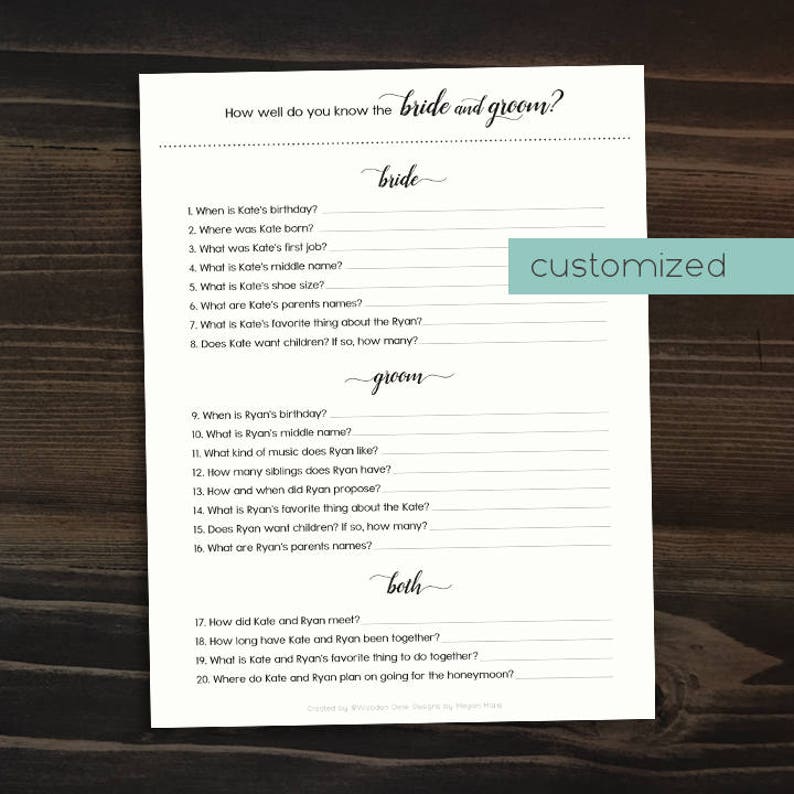 How well do you know the bride and groom?
bride
1. When is Kate's birthday?
2. Where was Kate born?
3. What was Kate's first job?
4. What is Kate's middle name?
5. What is Kate's shoe size?
6. What are Kate's parents names?
7. What is Kate's favorite thing about the Ryan?
8. Does Kate want children? If so, how many?
customized
groom
9. When is Ryan's birthday?
10. What is Ryan's middle name?
11. What kind of music does Ryan like?
12. How many siblings does Ryan have?
13. How and when did Ryan propose?
14. What is Ryan's favorite thing about the Kate?
15. Does Ryan want children? If so, how many?
16. What are Ryan's parents names?
both
17. How did Kate and Ryan meet?
18. How long have Kate and Ryan been together?
19. What is Kate and Ryan's favorite thing to do together?
20. Where do Kate and Ryan plan on going for the honeymoon?
Created by ©Wooden Designs by Megan